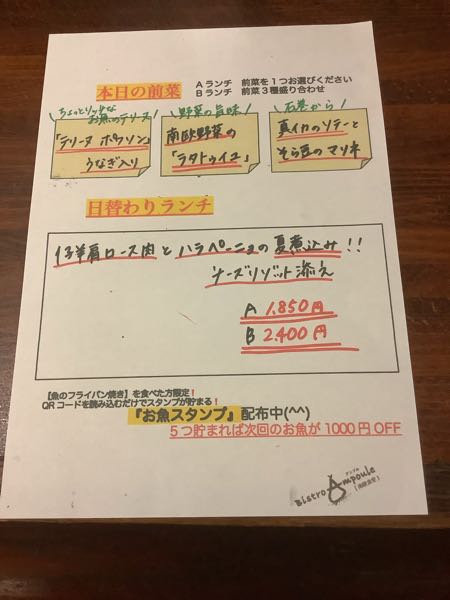 本日の前菜
Aランチ 前菜を1つお選びください
Bランチ 前菜3種盛り合わせ
ちょっとリッチな
お魚のテリーヌ
「テリーヌ ポワソン」
うなぎ入り
野菜の旨味
南欧野菜の
「ラタトゥイユ」
石巻から
真イカのソテーと
そら豆のマリネ
日替わりランチ
仔羊肩ロース肉とハラペーニョの夏煮込み!!
チーズリゾット添え
A 1,850円
B 2,400円
【魚のフライパン焼き】を食べた方限定!
QRコードを読み込むだけでスタンプが貯まる!
『お魚スタンプ』配布中(^^)
5つ貯まれば次回のお魚が1000円OFF
アンプル
Bistro Ampoule